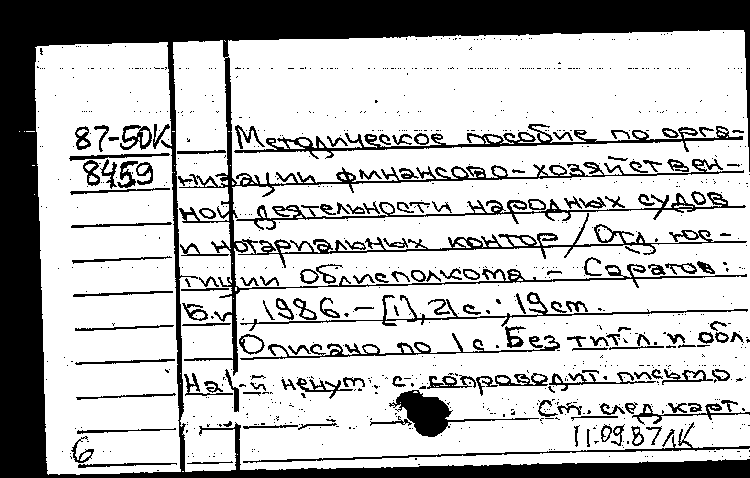 87-50К Методическое пособие по орга-
8459 низации финансово-хозяйствен-
ной деятельности народных судов
и нотариальных контор / Отд. юс-
тиции облисполкома. - Саратов:
Б.и., 1986. - [1], 21 с.; 19 см.
Описано по 1 с. Без тит. л. и обл.
На 1-й ненум. с. сопроводит. письмо.
См. след. карт.
6 11.09.87 ЛК